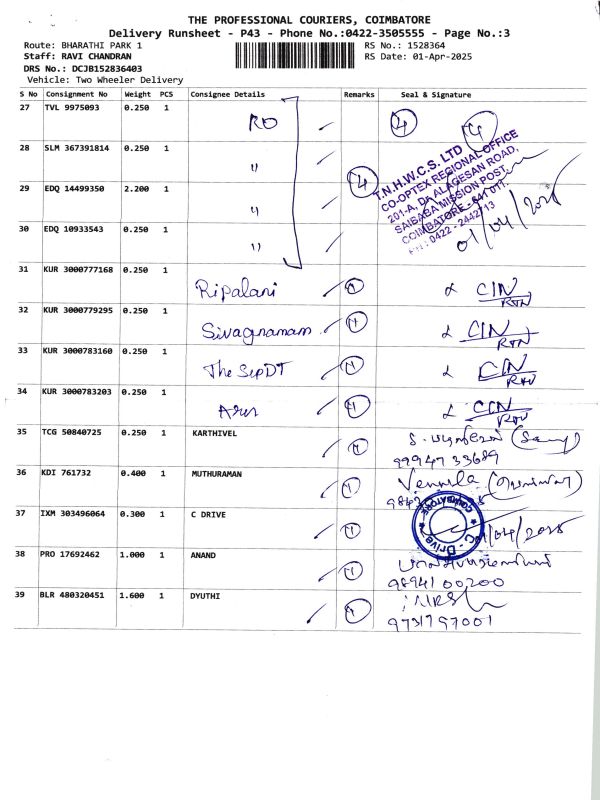 THE PROFESSIONAL COURIERS, COIMBATORE
Delivery Runsheet - P43 - Phone No.:0422-3505555 - Page No.:3
Route: BHARATHI PARK 1
RS No.: 1528364
Staff: RAVI CHANDRAN
RS Date: 01-Apr-2025
DRS No.: DCJB152836403
Vehicle: Two Wheeler Delivery
S No Consignment No Weight PCS Consignee Details Remarks Seal & Signature
27 TVL 9975093 0.250 1 RO ④
28 SLM 367391814 0.250 1 "
④
T.N.H.W.C.S. LTD
CO-OPTEX REGIONAL OFFICE
201-A, DR ALAGESAN ROAD,
SAIBABA MISSION POST,
COIMBATORE - 641 011.
PH: 0422 - 2442713
29 EDQ 14499350 2.200 1 "
01/04/2025
30 EDQ 10933543 0.250 1 "
31 KUR 3000777168 0.250 1 Ripalani CIN
RTN
32 KUR 3000779295 0.250 1 Sivagnamam CIN
RTN
33 KUR 3000783160 0.250 1 The CIN
RTN
34 KUR 3000783203 0.250 1 CIN
RTN
35 TCG 50840725 0.250 1 KARTHIVEL
99947 33689
36 KDI 761732 0.400 1 MUTHURAMAN Vennila
37 IXM 303496064 0.300 1 C DRIVE
C-Drive COIMBATORE
/04/2025
38 PRO 17692462 1.000 1 ANAND
98941 00200
39 BLR 480320451 1.600 1 DYUTHI
9731797001